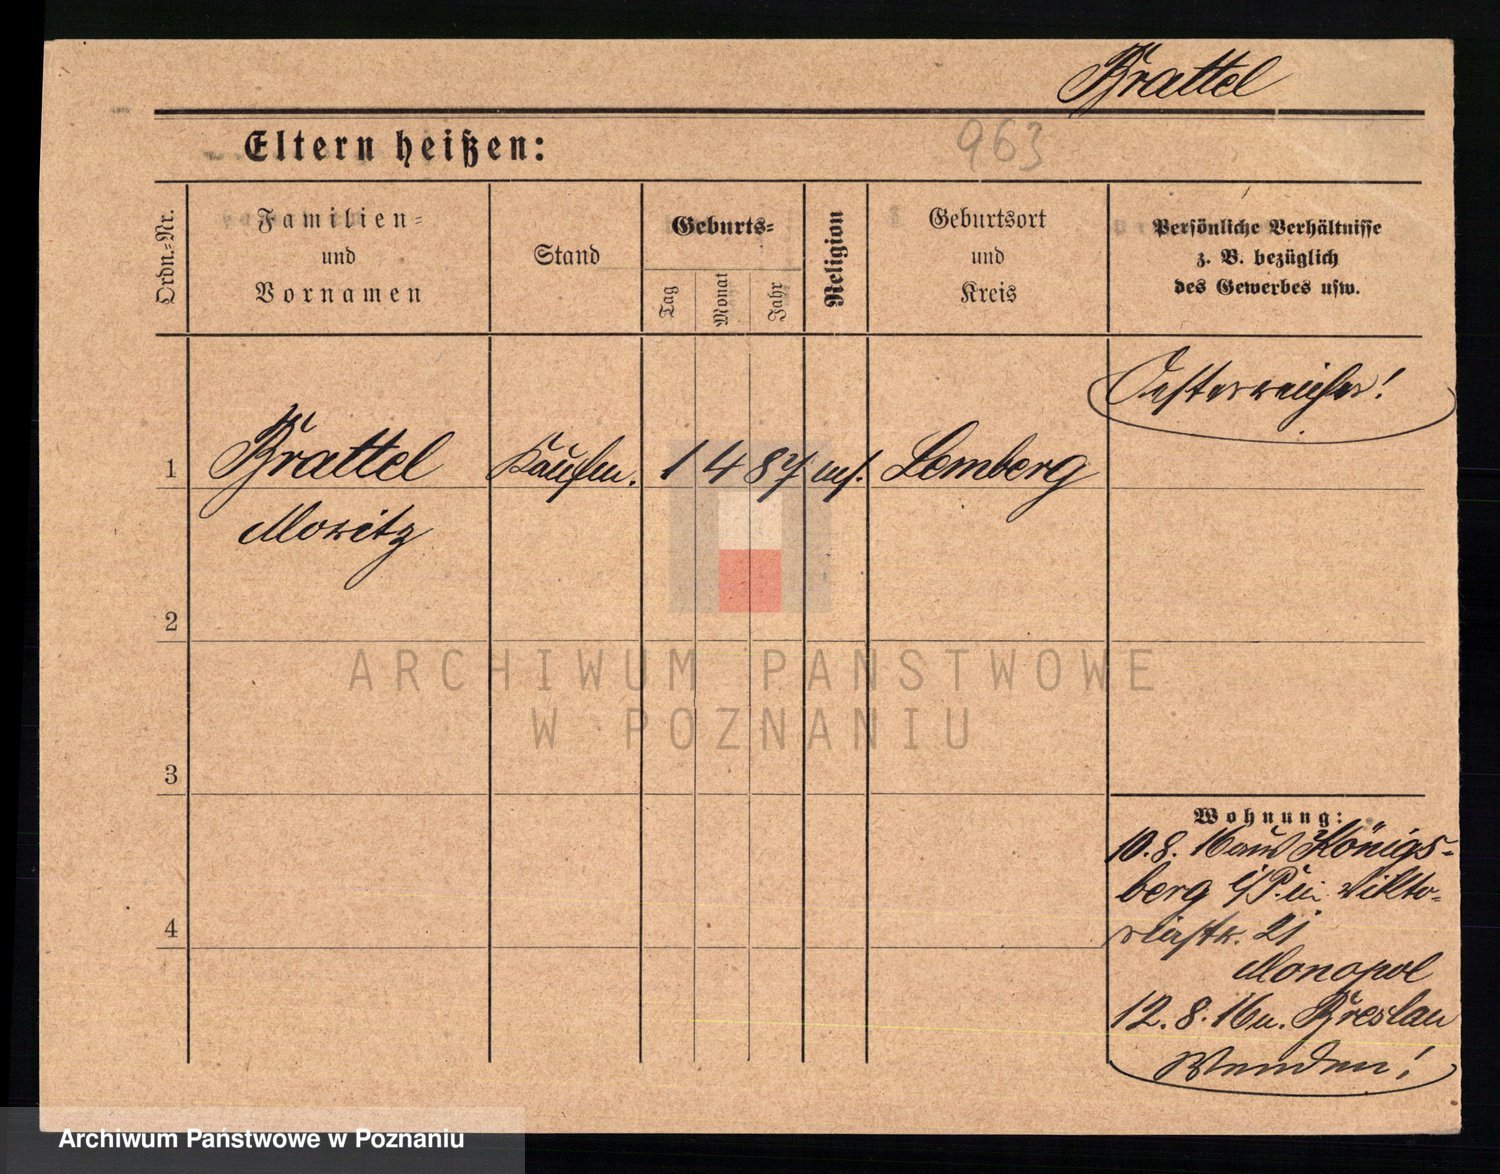 Brattel
Eltern heißen:
963
Ordn.=Nr.
Familien=
und
Vornamen
Stand
Geburts=
Tag
Monat
Jahr
Religion
Geburtsort
und
Kreis
Persönliche Verhältnisse
z. B. bezüglich
des Gewerbes usw.
Oesterreicher!
1 Brattel Kaufm. 1 4 87 Lemberg
Moritz
2
3
4
Wohnung:
10.8.16 aus Königs-
berg i/P. in Vikto-
riastr. 21
Monopol
12.8.16 n. Breslau
Wenden!
ARCHIWUM PAŃSTWOWE
W POZNANIU
Archiwum Państwowe w Poznaniu